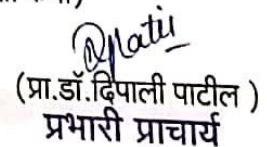 (प्रा.डॉ.दिपाली पाटील )
प्रभारी प्राचार्य